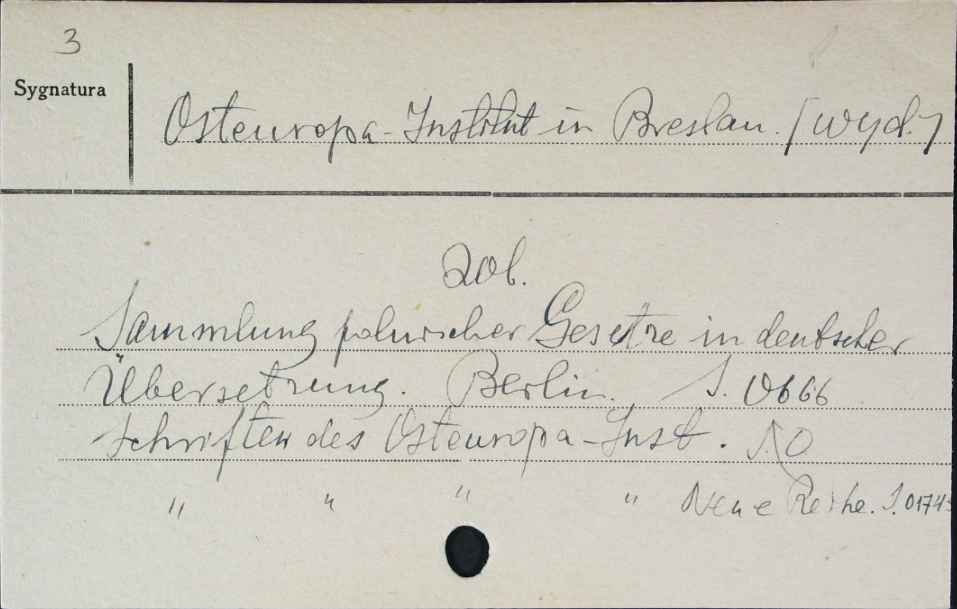 3
Sygnatura
Osteuropa-Institut in Breslau. [wyd.]
Zob.
Sammlung polnischer Gesetze in deutscher
Übersetzung. Berlin. S. 0666
Schriften des Osteuropa-Inst.
" " " " Neue Reihe. S. 0174